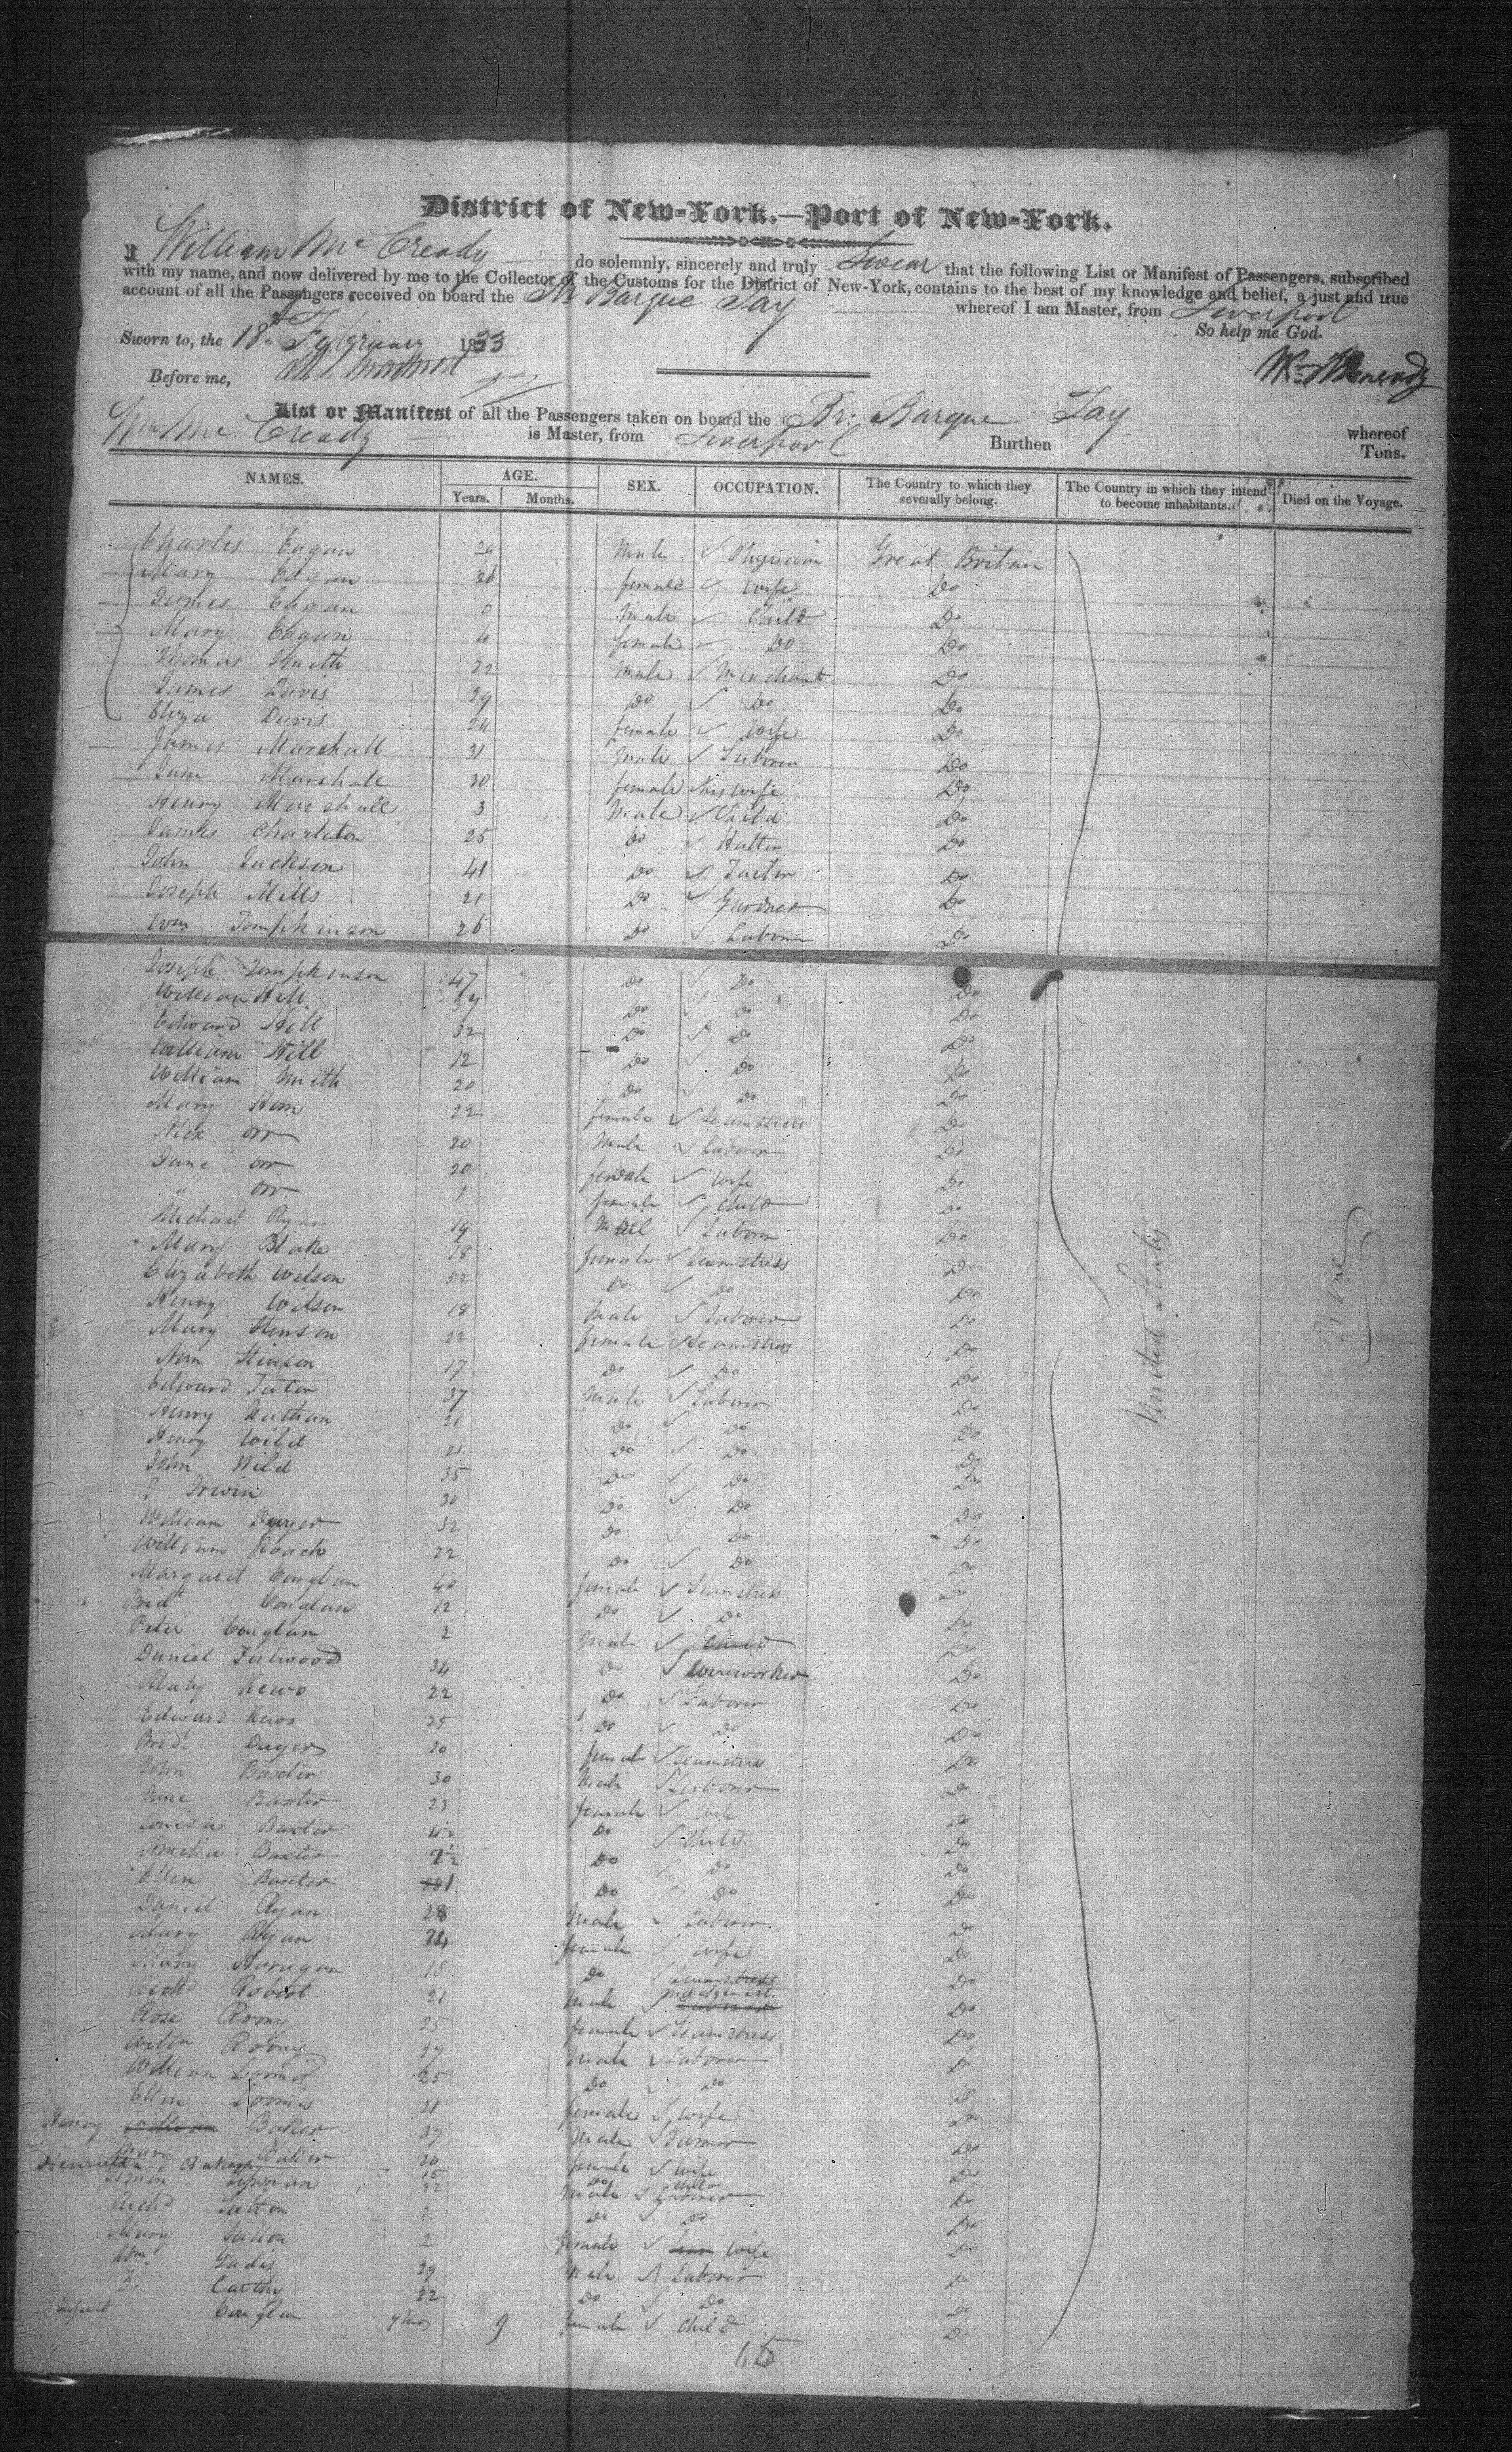 District of New-York.—Port of New-York.
I William McCready do solemnly, sincerely and truly Swear that the following List or Manifest of Passengers, subscribed
with my name, and now delivered by me to the Collector of the Customs for the District of New-York, contains to the best of my knowledge and belief, a just and true
account of all the Passengers received on board the Barque Tay whereof I am Master, from Liverpool
So help me God.
Sworn to, the 18th February 1833
Before me,
List or Manifest of all the Passengers taken on board the Br: Barque Tay whereof
Wm McCready is Master, from Liverpool Burthen Tons.
NAMES. AGE. SEX. OCCUPATION. The Country to which they severally belong. The Country in which they intend to become inhabitants. Died on the Voyage.
Years. Months.
Charles Eagan 29 Male Physician Great Britain
Mary Eagan 26 female wife Do
James Eagan Male Child Do
Mary Eagan 4 female Do Do
Thomas Smith 22 Male Merchant Do
James Davis 29 Do Do Do
Eliza Davis 24 female Wife Do
James Marshall 31 Male Laborer Do
Jane Marshall 30 female his wife Do
Henry Marshall 3 Male Child Do
James Charleton 25 Do Hatter Do
John Jackson 41 Do Do
Joseph Mills 21 Do Gardner Do
Wm Tompkinson 26 Do Laborer Do
Joseph Tompkinson 47 Do Do Do
William Hill Do Do Do
Edward Hill 32 Do Do Do
William Hill 12 Do Do Do
William Smith 20 Do Do Do
Mary 22 female Seamstress Do
Alex Orr 20 Male Laborer Do
Jane Orr 20 female Wife Do
" Orr 1 female Child Do
Michael Ryan 19 Male Laborer Do
Mary Blake 18 female Seamstress Do
Elizabeth Wilson 52 Do Do Do
Henry Wilson 18 Male Laborer Do
Mary Stinson 22 female Seamstress Do
Ann Stinson 17 Do Do Do
Edward 37 Male Laborer Do
Henry Nathan 21 Do Do Do
Henry Wild 21 Do Do Do
John Wild 35 Do Do Do
J Irwin 30 Do Do Do
William Dwyer 32 Do Do Do
William Roach 22 Do Do Do
Margaret Conglan 40 female Seamstress Do
Bridt Conglan 12 Do Do Do
Peter Conglan 2 Male Child Do
Daniel Fulwood 34 Do Wireworker Do
22 Do Laborer Do
Edward 25 Do Do Do
Brid. Dwyer 20 female Seamstress Do
John Baxter 30 Male Laborer Do
Jane Baxter 23 female Wife Do
Louisa Baxter Do Child Do
Amelia Baxter 2½ Do Do Do
Ellen Baxter 1 Do Do Do
Daniel Ryan 28 Male Laborer Do
Mary Ryan 24 female Wife Do
Mary 18 Do Seamstress Do
Richd 21 Male Do
Rose Roony 25 female Seamstress Do
Roony 27 Male Laborer Do
William Loomis 25 Do Do Do
Ellen Loomis 21 female Wife Do
Henry Baker 37 Male Farmer Do
Mary Baker 30 female Wife Do
Henrietta Baker 15 Do Child
32 Male Laborer Do
Richd Sutton Do Do Do
Mary Sutton female Wife Do
29 Male Laborer Do
Carthy 22 Do Do Do
Infant Conglan 9 mos 9 female Child Do
United States
None
65